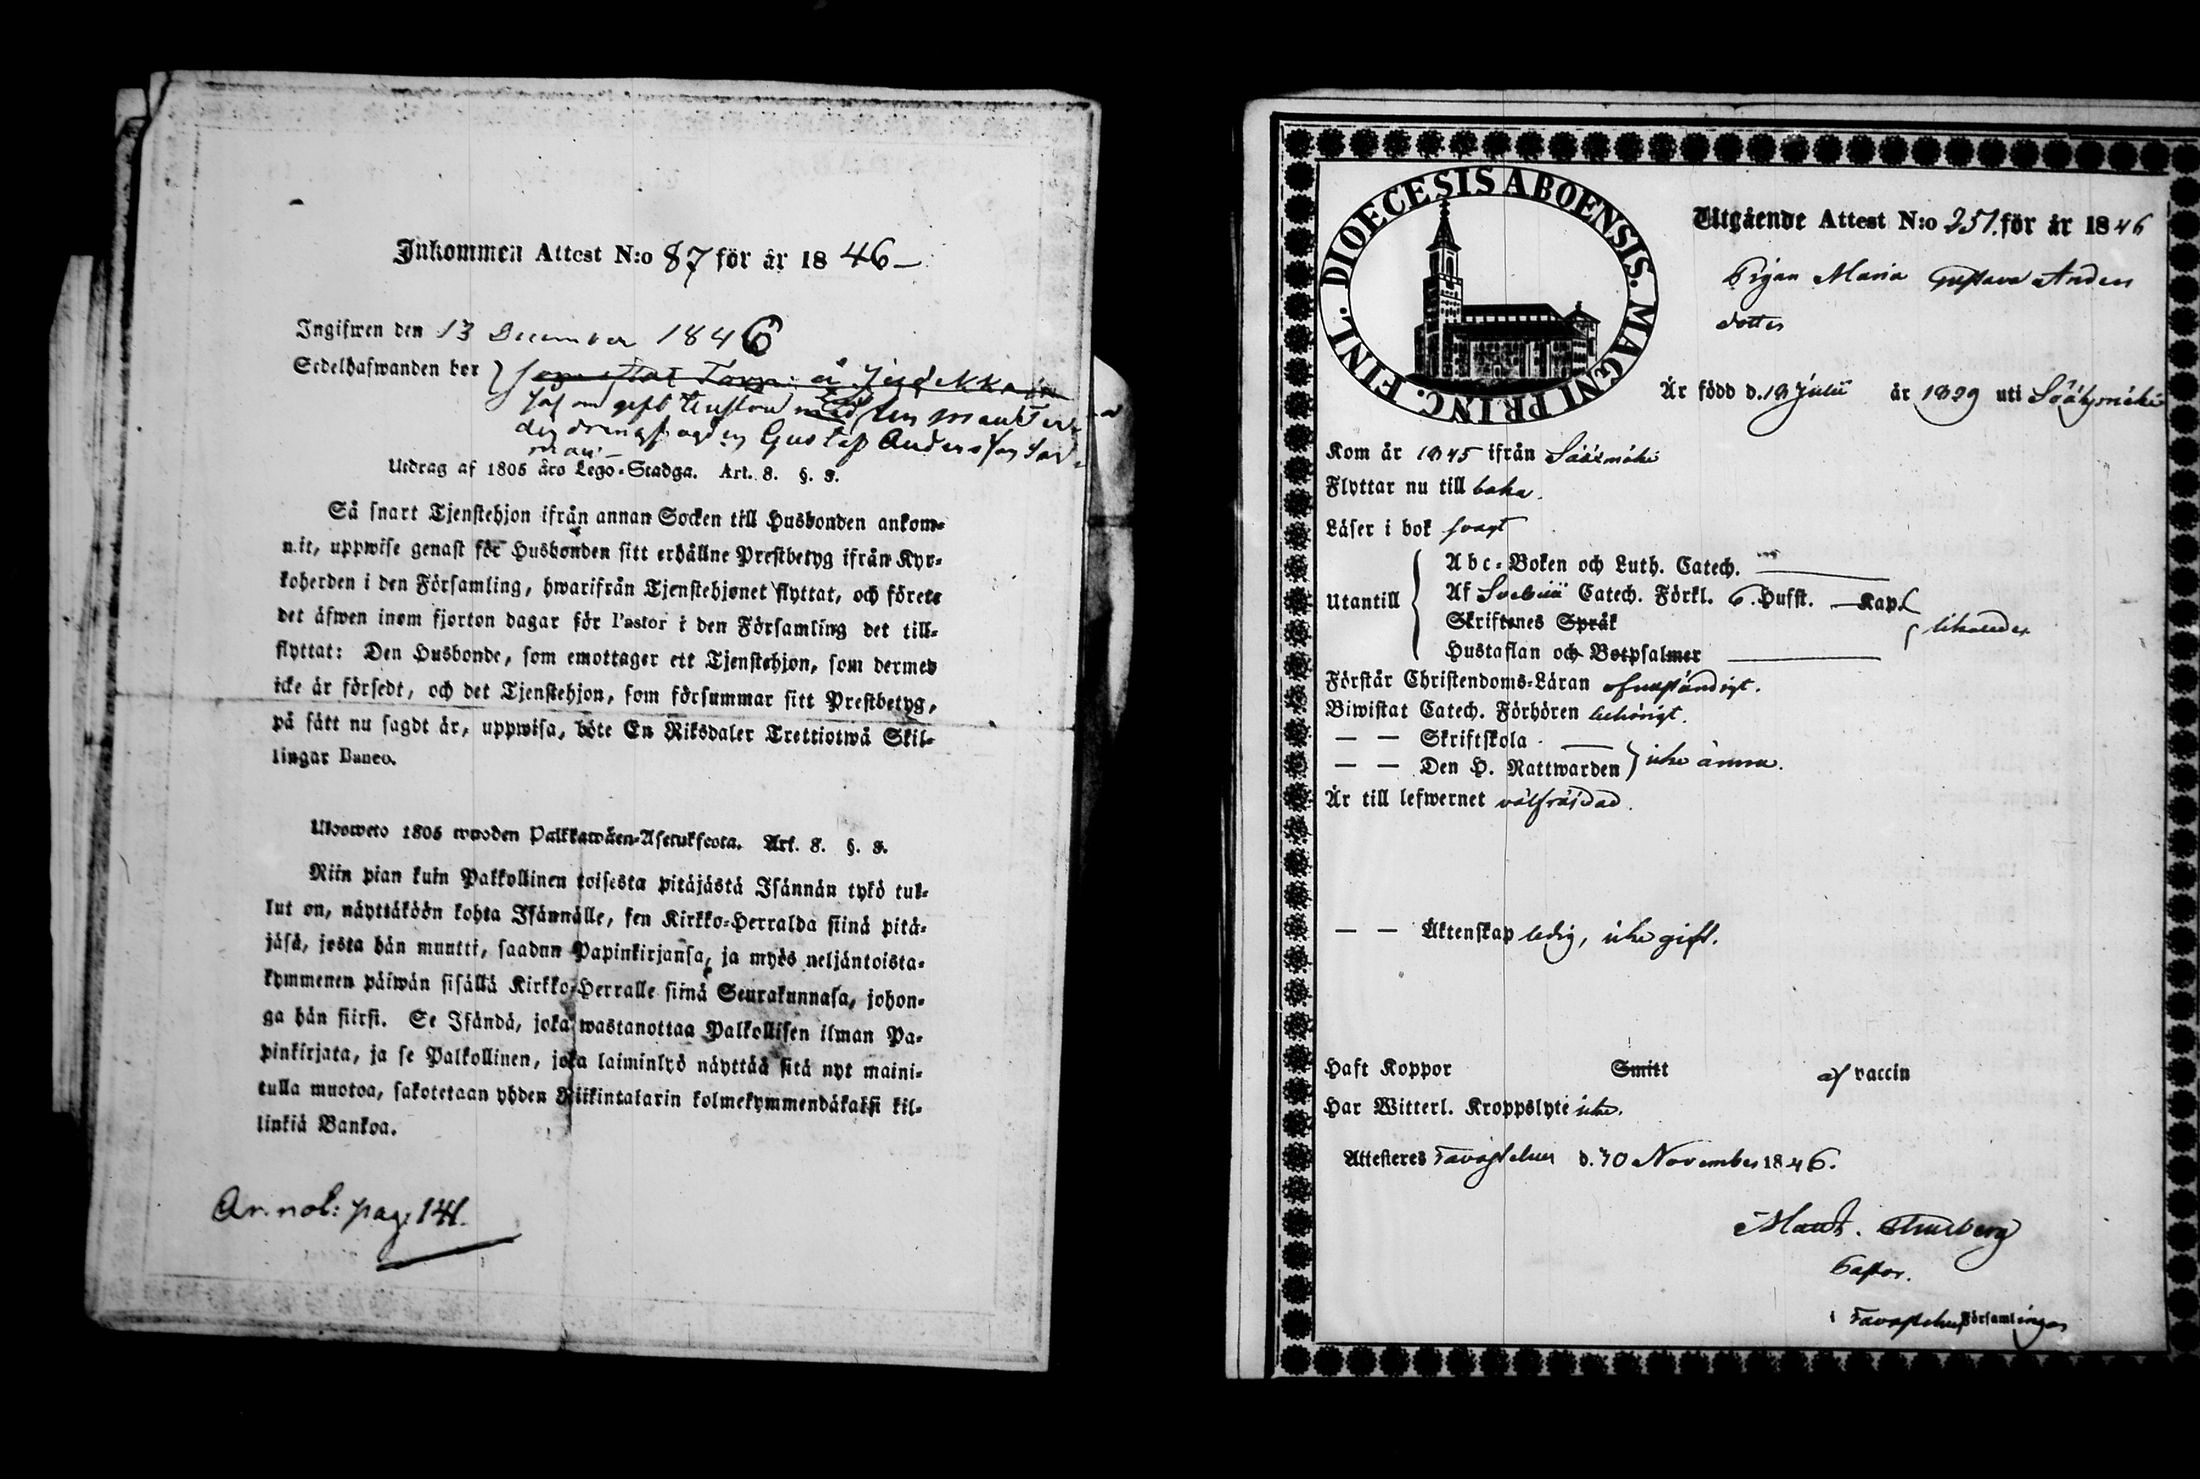 Inkommen Attest N:o 87 för år 1846 —
Ingifwen den 13 December 1846
Sedelhafwanden bor
den drängs Gustaf Anders
Utdrag af 1805 års Lego-Stadga. Art. 8. §. 3.
Så snart Tjenstehjon ifrån annan Socken till Husbonden ankom-
mit, uppwise genast för Husbonden sitt erhållne Prestbetyg ifrån Kyr-
koherden i den Församling, hwarifrån Tjenstehjonet flyttat, och förete
det äfwen inom fjorton dagar för Pastor i den Församling det till-
flyttat: Den Husbonde, som emottager ett Tjenstehjon, som dermed
icke är försedt, och det Tjenstehjon, som försummar sitt Prestbetyg,
på sätt nu sagdt är, uppwisa, böte En Riksdaler Trettiotwå Skil-
lingar Banco.
Ulosweto 1805 wuoden Palkkawäen-Asetuksesta. Art. 8. §. 3.
Niin pian kuin Palkollinen toisesta pitäjästä Isännän tykö tul-
lut on, näyttäköön kohta Isännälle, sen Kirkko-Herralda siinä pitä-
jäsä, josta hän muutti, saadun Papinkirjansa, ja myös neljäntoista-
kymmenen päiwän sisällä Kirkko-Herralle siinä Seurakunnasa, johon-
ga hän siirsi. Se Isändä, joka wastanottaa Palkollisen ilman Pa-
pinkirjata, ja se Palkollinen, joka laiminlyö näyttää sitä nyt maini-
tulla muotoa, sakotetaan yhden Riikintalarin kolmekymmendäkaksi kil-
linkiä Bankoa.
Annot: pag: 141.
DIOECESIS ABOENSIS. MAGNI PRINC. FINL.
Utgående Attest N:o 251. för år 1846
Pigan Maria Gustava Anders
dotter
Är född d. 18 Julii år 1829 uti Sääksmäki
Kom år 1845 ifrån Sääksmäki
Flyttar nu till baka.
Läser i bok svagt
Utantill
Abc-Boken och Luth. Catech. —
Af Svebilii Catech. Förkl. 6. Hufst. — Kap.
Skriftenes Språk
likaledes
Hustaflan och Botpsalmer —
Förstår Christendoms-Läran ofullständigt.
Biwistat Catech. Förhören behörigt.
— — Skriftskola —
— — Den H. Nattwarden icke ännu.
Är till lefwernet välfräjdad.
— — Äktenskap ledig, icke gift.
Haft Koppor Smitt af vaccin
Har Witterl. Kroppslyte icke.
Attesteres Tavastehus d. 30 November 1846.
Pastor.
i Tavastehus Församlingar